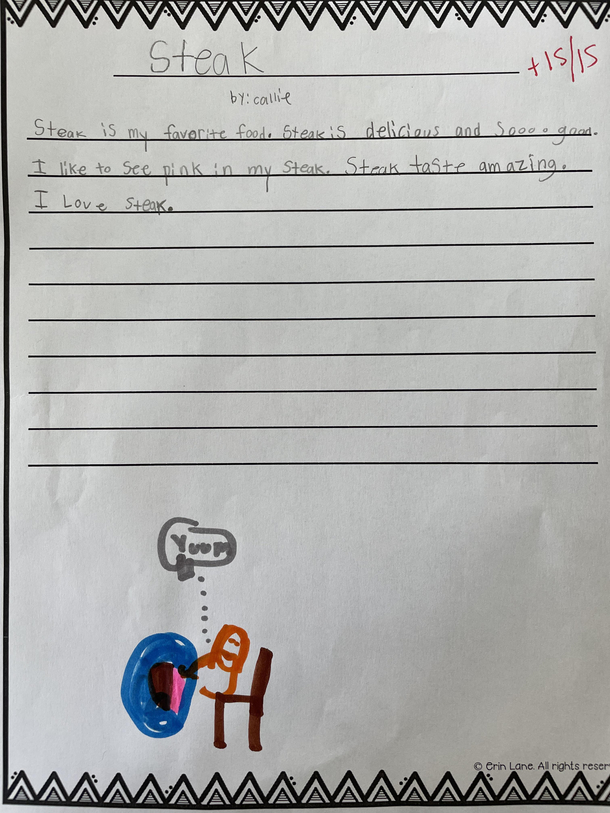 Steak
+15/15
by: Callie
Steak is my favorite food. Steak is delicious and Soooo good.
I like to see pink in my steak. Steak taste amazing.
I Love steak.
Yuum
© Erin Lane. All rights reser